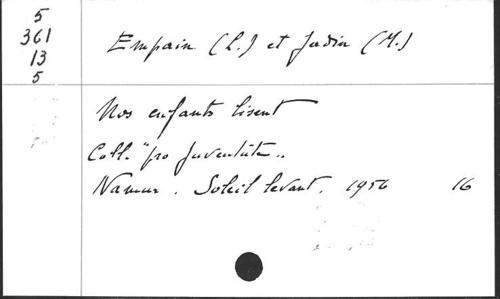 5
361
13
5
Empain (L.) et Jadin (M.)
Nos enfants lisent
Coll. "pro juventute"
Namur. Soleil levant. 1956 16